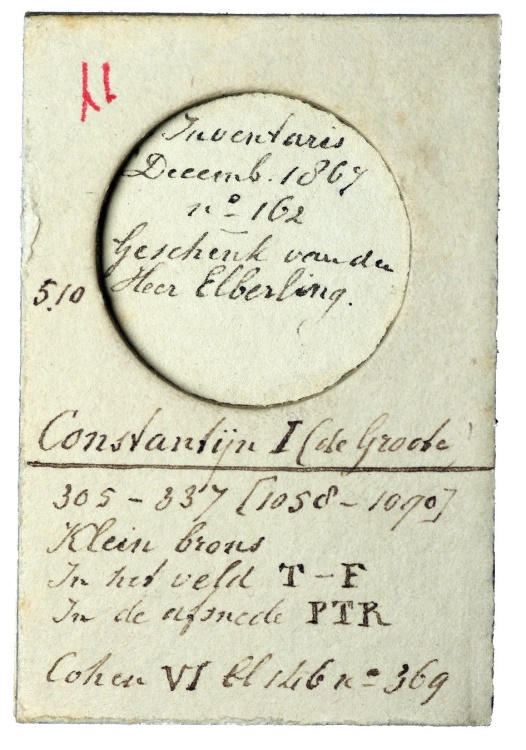 Inventaris
Decemb. 1867
nº 162
Geschenk van den
Heer Elberling.
5,10
Constantijn I (de Groote
305 – 337 [1058 – 1090]
Klein brons
In het veld T – F
In de afsnede PTR
Cohen VI bl 146 nº 369